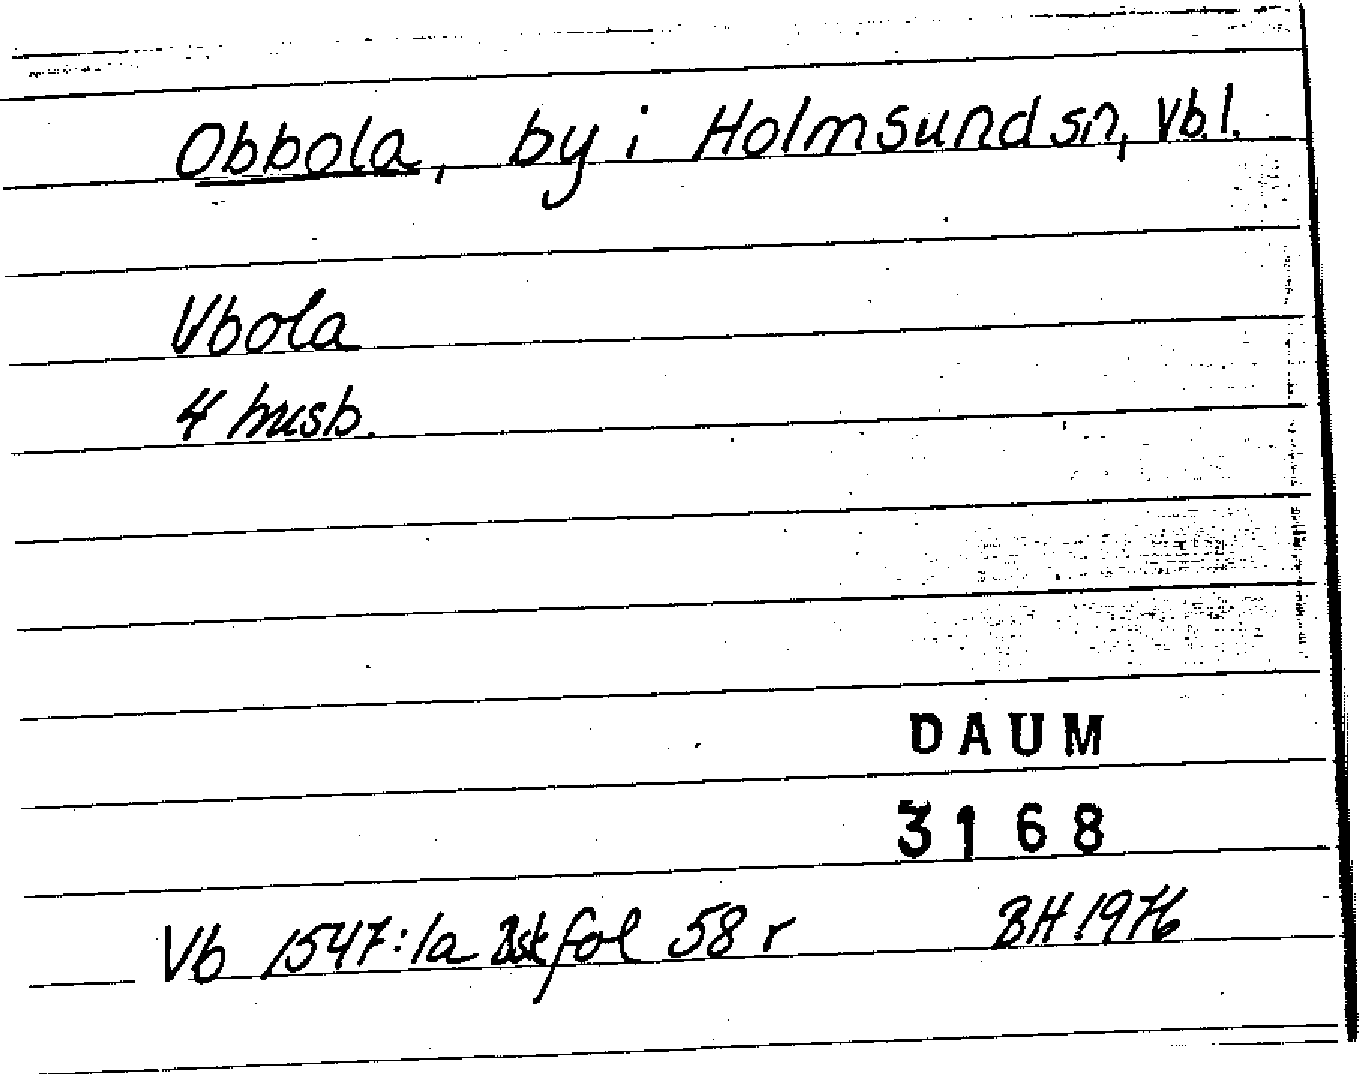 Obbola, by i Holmsund sn, Vb.l.
Vbola
4 husb.
DAUM
3168
Vb 1547:1a Bsk fol 58 r BH 1976